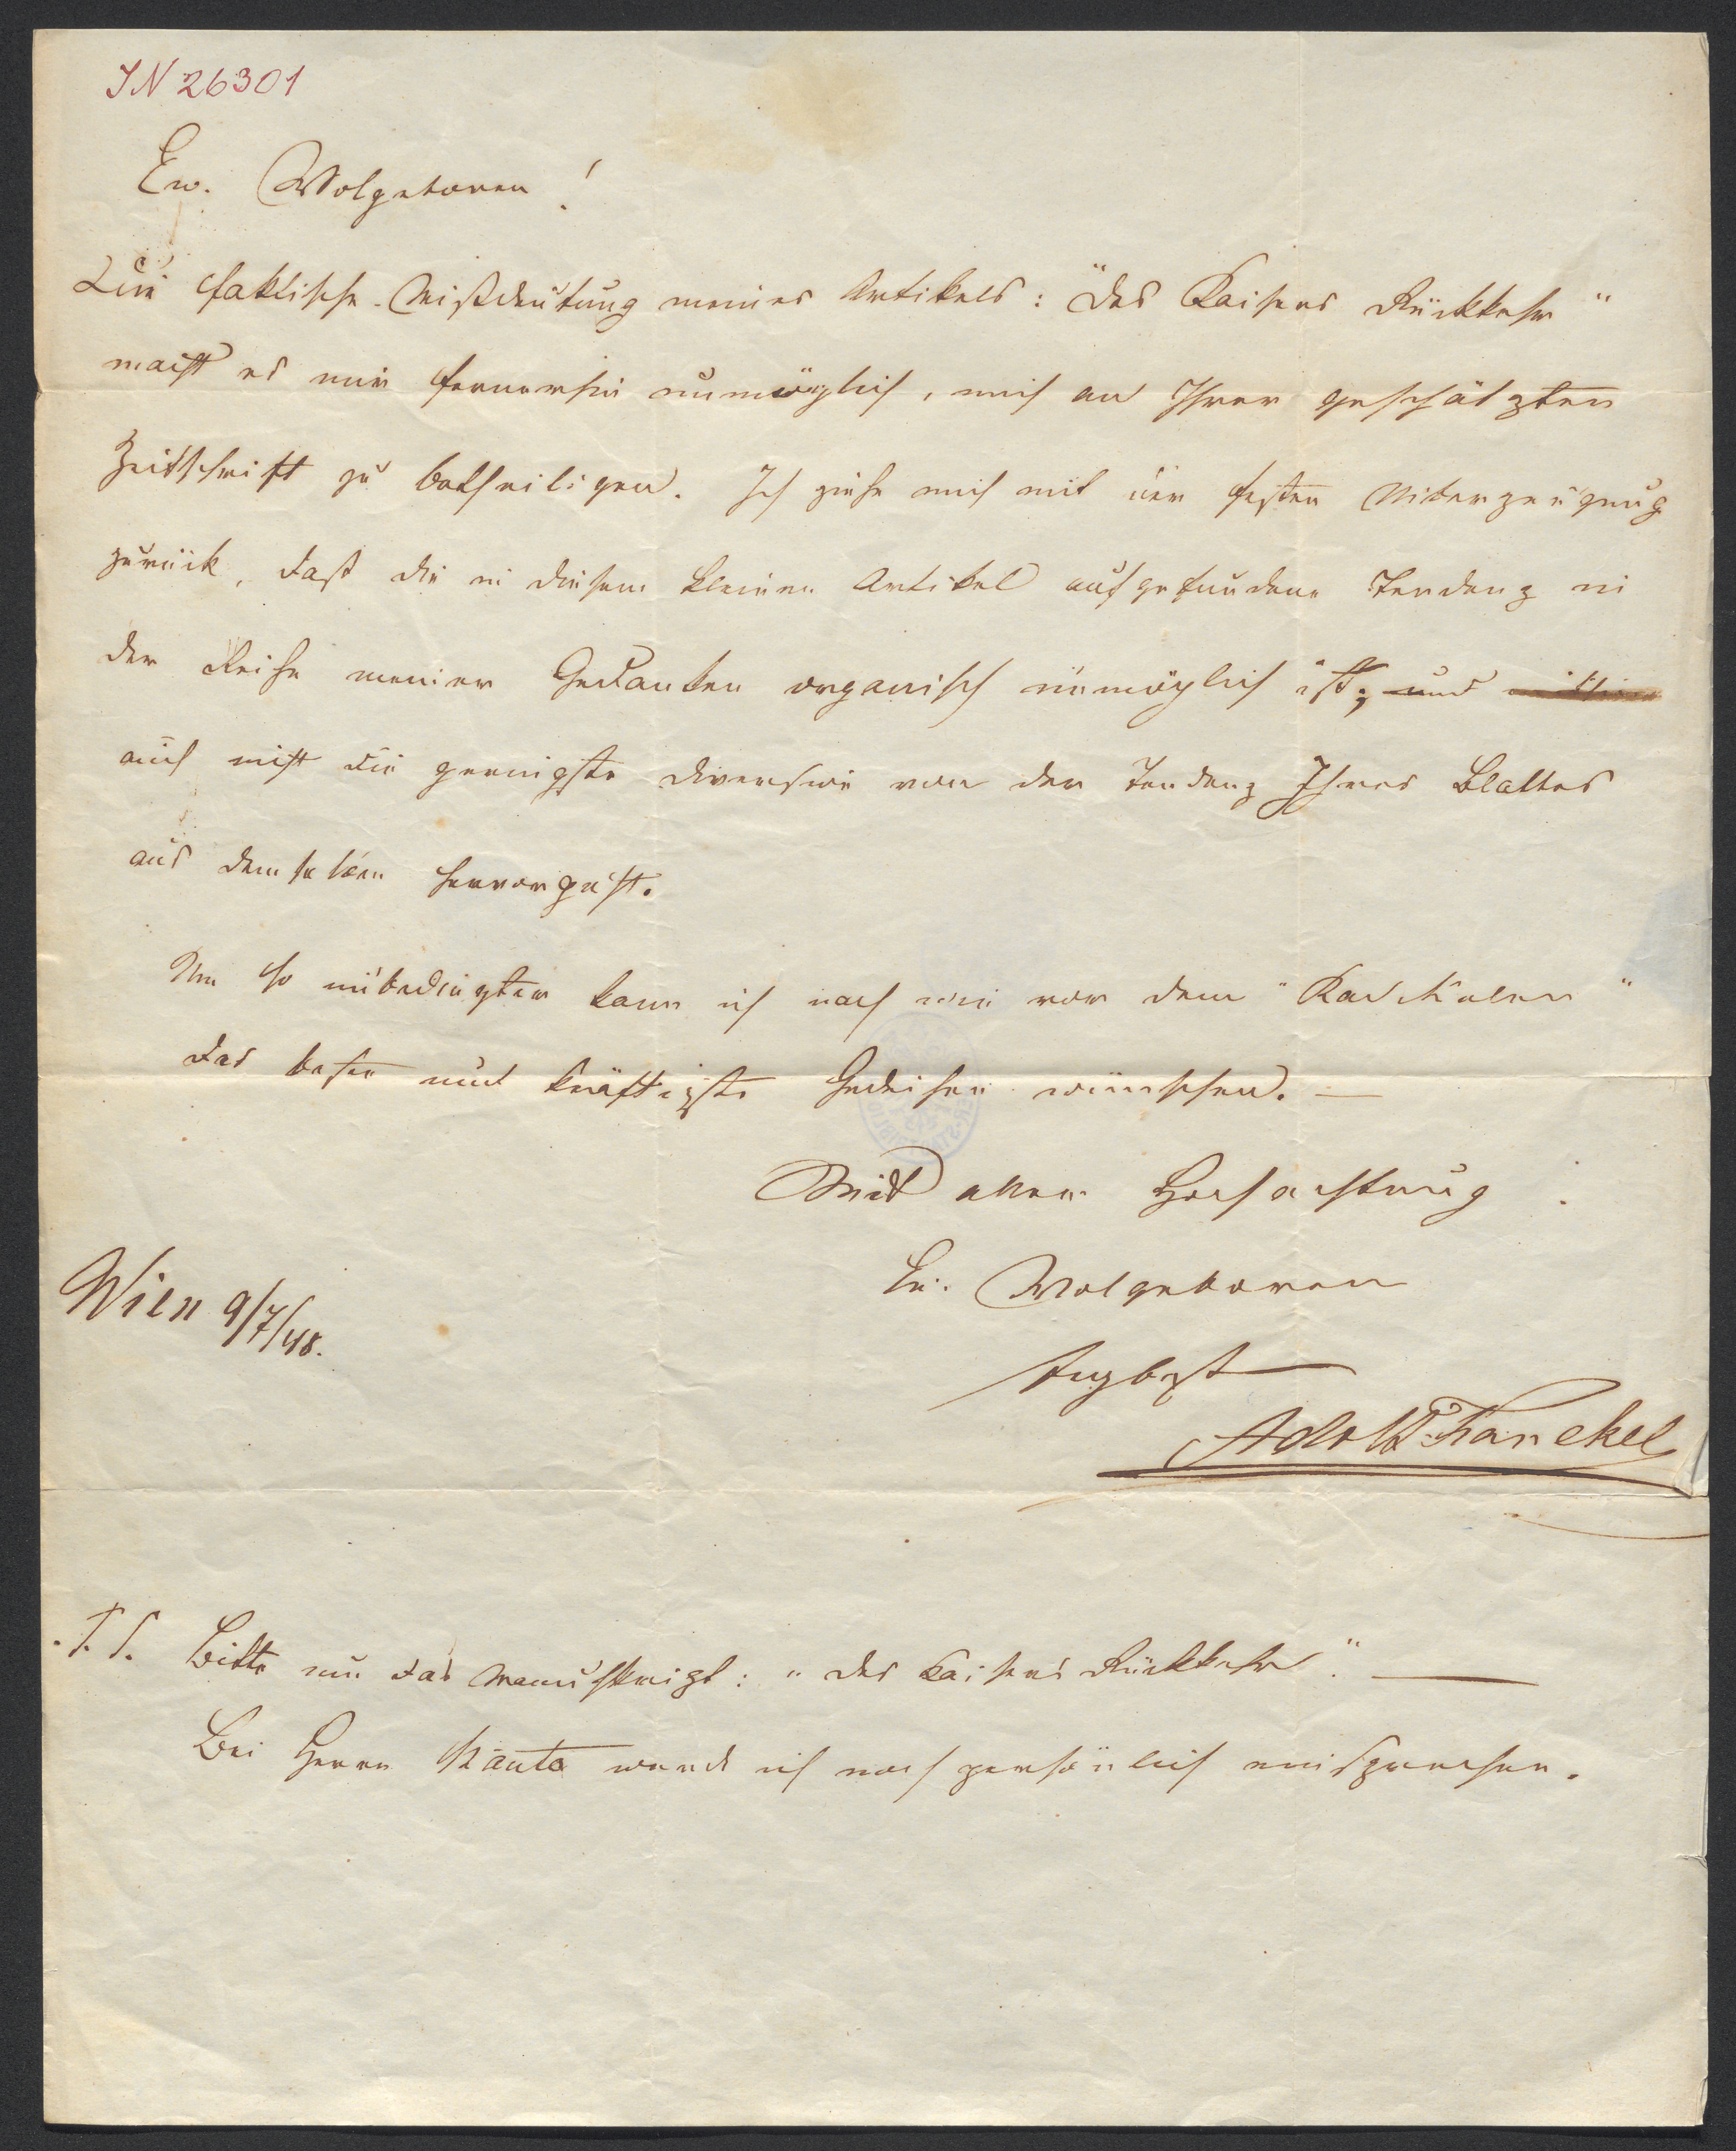 IN 26301
Ew. Wolgeboren!
Die faktische Mißdeutung meines Artikels: "Des Kaisers Rückkehr"
macht es mir fernerhin unmöglich, mich an Ihrer geschätzten
Zeitschrift zu betheiligen. Ich ziehe mich mit der festen Uiberzeugung
zurück, daß die in diesem kleinen Artikel aufgefundene Tendenz in
der Reihe meiner Gedanken organisch unmöglich ist; und
auch nicht die geringste Diversion von der Tendenz Ihres Blattes
aus demselben hervorgeht.
Um so unbedingter kann ich nach wie vor dem "Radikalen"
das beste und kräftigste Gedeihen wünschen. —
Mit aller Hochachtung
Eu. Wolgeboren
Wien 9/7/48.
Adolf Franckel
P.S. Bitte um das Manuskript: "Des Kaisers Rückkehr". —
Bei Herrn werde ich noch persönlich einsprechen.